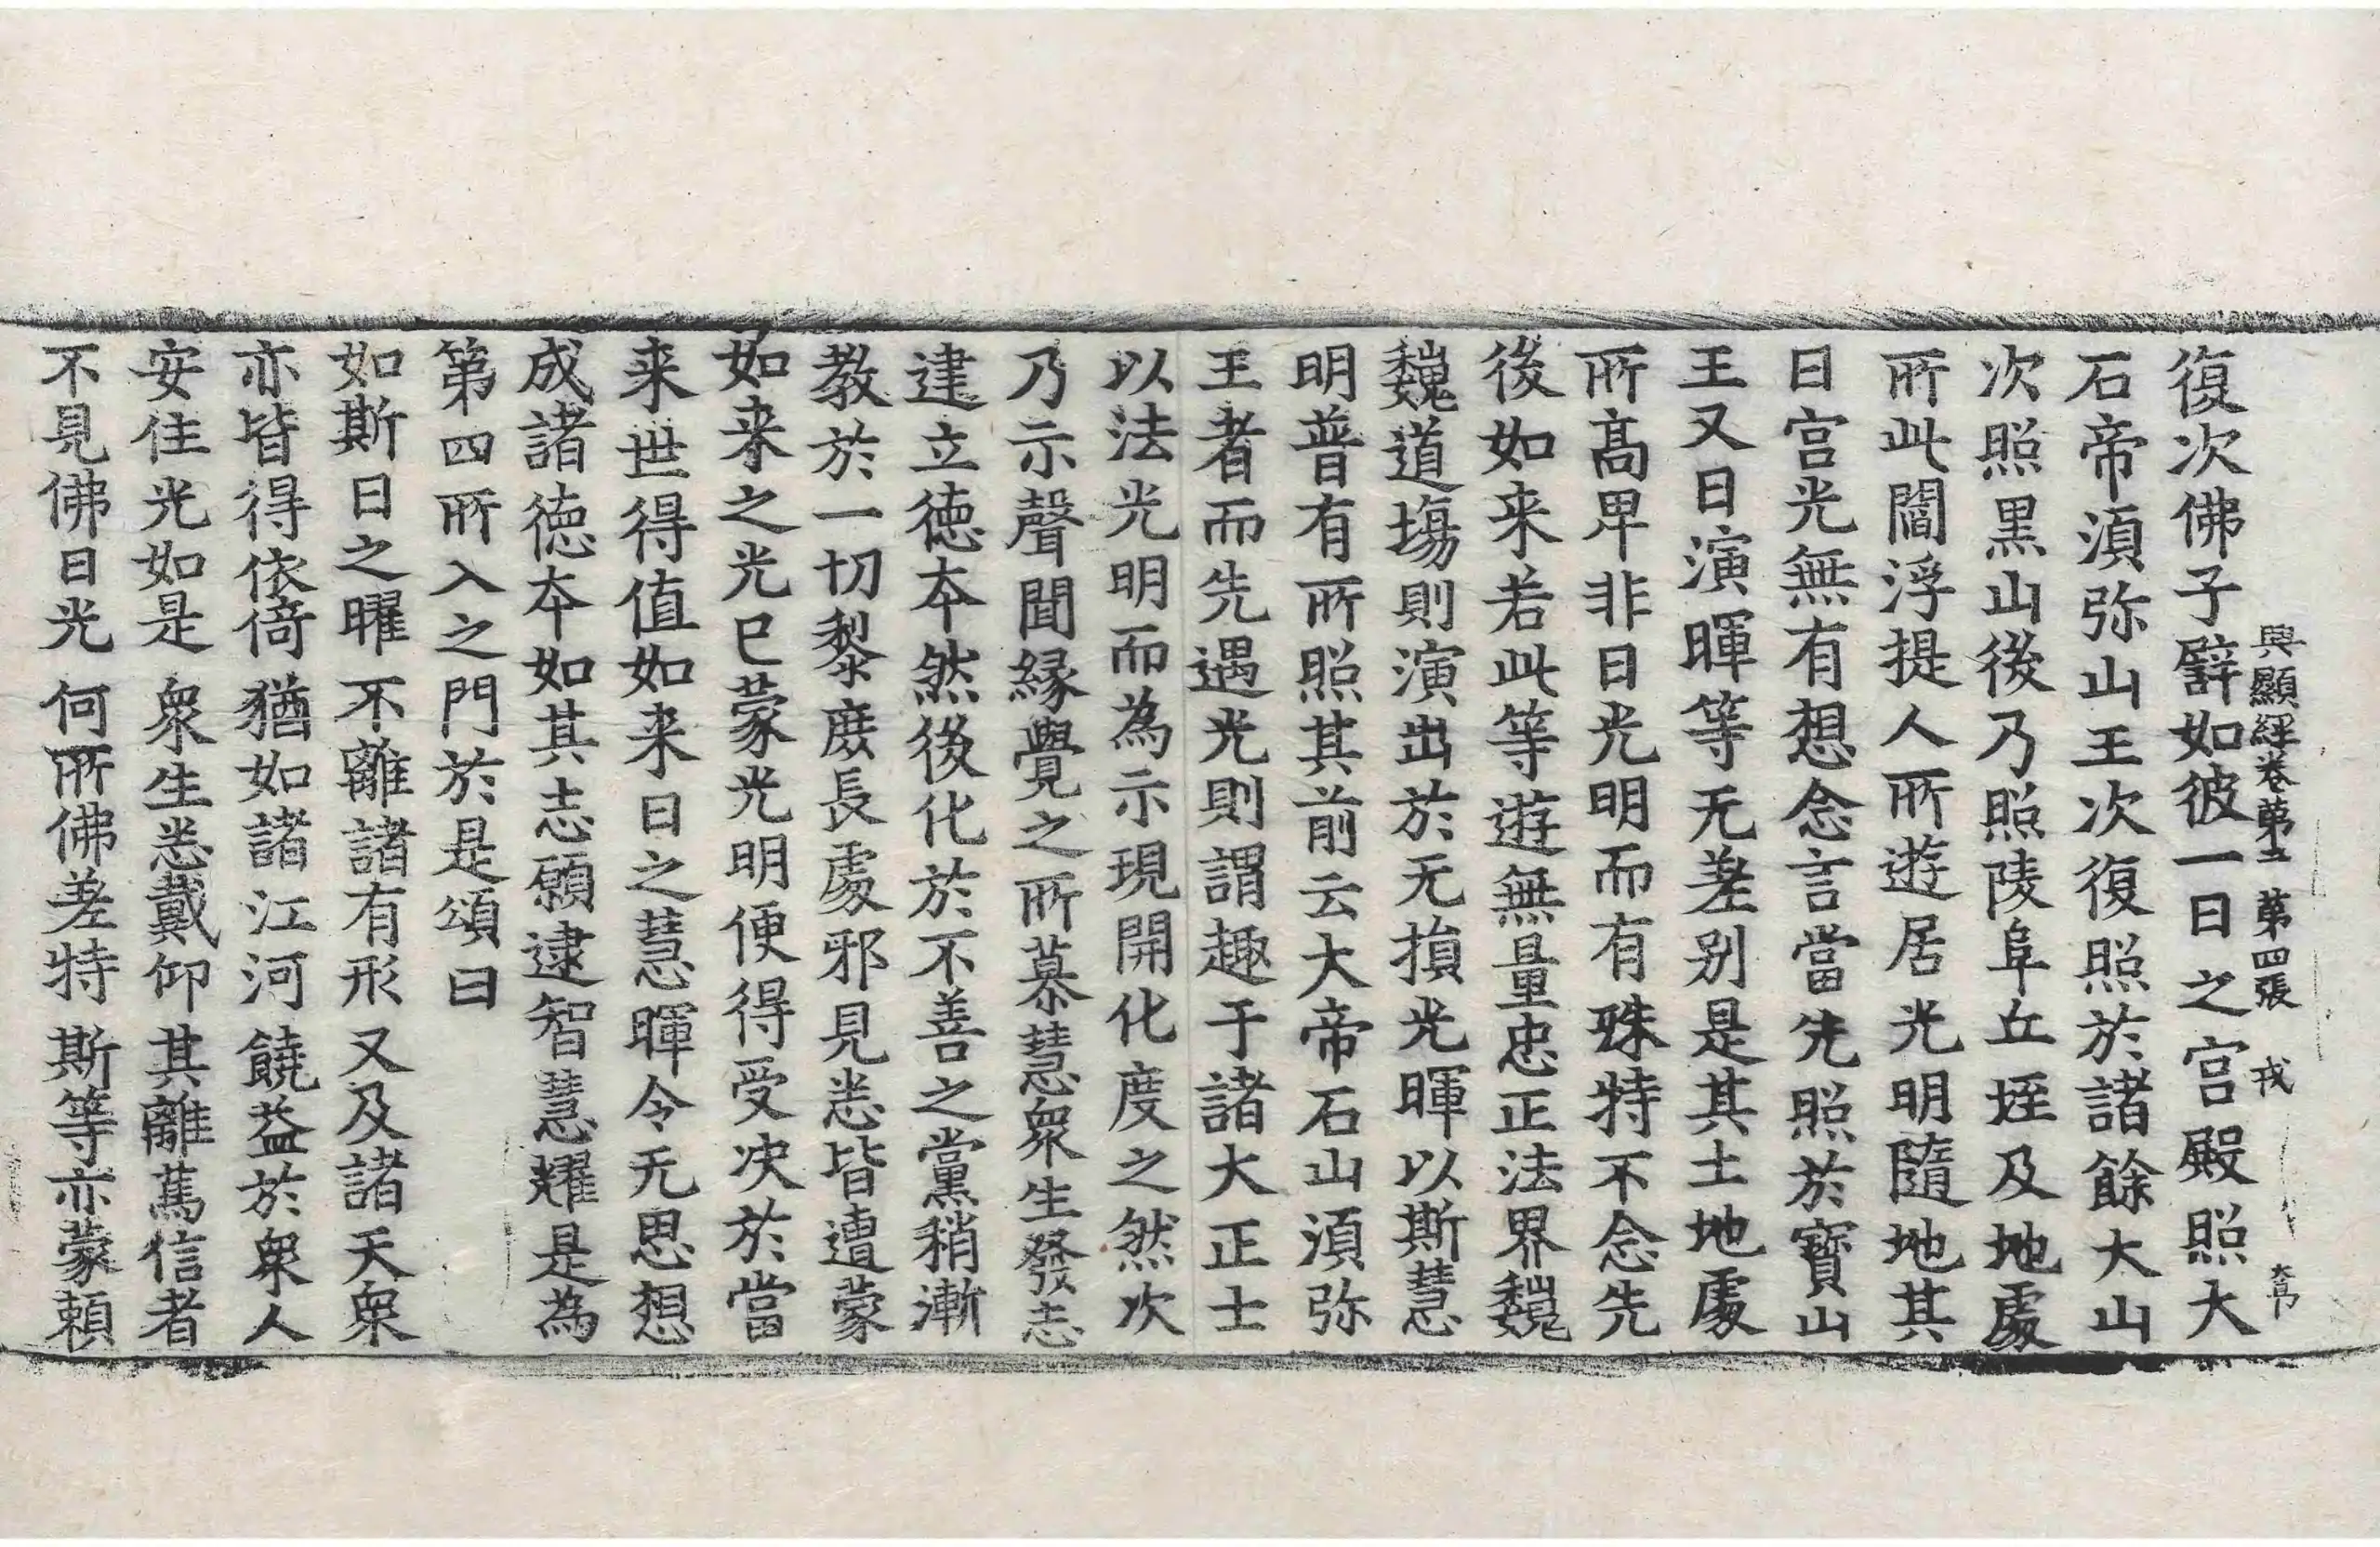 興顯經卷第二 第四張 戎
復次佛子譬如彼一日之宮殿照大
石帝湏弥山王次復照於諸餘大山
次照黒山後乃照陵阜丘垤及地處
所此閻浮提人所遊居光明隨地其
日宮光無有想念言當先照於寶山
王又日演暉等无差别是其土地處
所髙卑非日光明而有殊特不念先
後如来若此等遊無量忠正法界巍
巍道塲則演出於无損光暉以斯慧
明普有所照其前云大帝石山湏弥
王者而先遇光則謂趣于諸大正士
以法光明而為示現開化度之然次
乃示聲聞縁覺之所慕慧衆生發志
建立徳本然後化於不善之黨稍漸
教於一切黎庶長處邪見悉皆遭蒙
如来之光已蒙光明便得受决於當
来世得值如来日之慧暉令无思想
成諸徳本如其志願逮智慧耀是為
第四所入之門於是頌曰
如斯日之曜 不離諸有形 又及諸天衆
亦皆得依倚 猶如諸江河 饒益於衆人
安住光如是 衆生悉戴仰 其離篤信者
不見佛日光 何所佛差特 斯等亦蒙頼